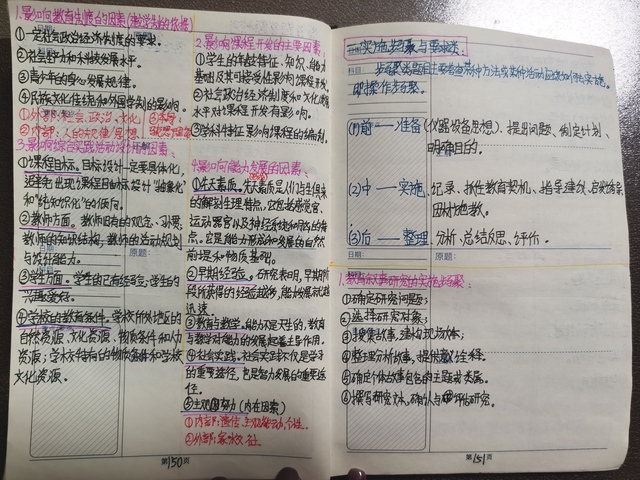 1.影响教育制度的因素(教学制的依据)
①一定社会政治经济制度的要求。
②社会生产力和科技发展水平。
③青少年的身心发展规律。
④民族文化传统和外国学制的影响。
①外部:社会、政治、文化
②内部:人的规律
3.影响综合实践活动设计的因素:
①课程目标。目标设计一定要具体化,
避免出现课程目标设计"抽象化"
和"纯知识化"的倾向。
②教师方面。教师旧有的观念、
教师的知识结构,教师的活动规划
与设计能力。
③学生方面。学生的已有经验,学生的
兴趣爱好。
④学校的教育条件。学校所处地区的
自然资源、文化资源、物质条件和人力
资源;学校特有的物质条件和学校
文化资源。
2.影响课程开发的主要因素:
①学生的年龄特征、知识、能力
基础及其可接受性影响课程开发
②社会政治经济制度和文化发展
水平对课程开发有影响。
③学科特征影响课程的编制。
4.影响能力发展的因素:
①先天素质。先天素质是人们与生俱来
的解剖生理特点,它包括感觉器官、
运动器官以及神经系统和脑的特
点。它是能力形成和发展的自然
前提和物质基础。
②早期经验。研究表明,早期阶
段所获得的经验越多,能力发展就越
迅速
③教育与教学。能力不是天生的,教育
与教学对能力的发展起着主导作用。
④社会实践。社会实践不仅是学习
的重要途径,也是智力发展的重要途
径。
⑤主观努力(内在因素)
①内部:遗传、主观能动、个性
②外部:家、校、社
第150页
一.实施步骤与要求类:
科目
步骤类题目主要考查某种方法或某种活动应该如何去实施。
即操作步骤。
(1)前——准备(仪器设备思想)、提出问题、制定计划、
明确目的。
(2)中——实施、记录、抓住教育契机、指导建议、启发诱导
因材施教。
(3)后——整理、分析、总结反思、评价。
日期
原题:
日期
原题:
1.教育叙事研究的实施步骤:
①确定研究问题;
②选择研究对象;
③搜集故事,建构现场文本;
④整理分析故事,提供诠释。
⑤确定个体故事包含的主题或类属。
⑥撰写研究文本,确认与评估研究。
第151页